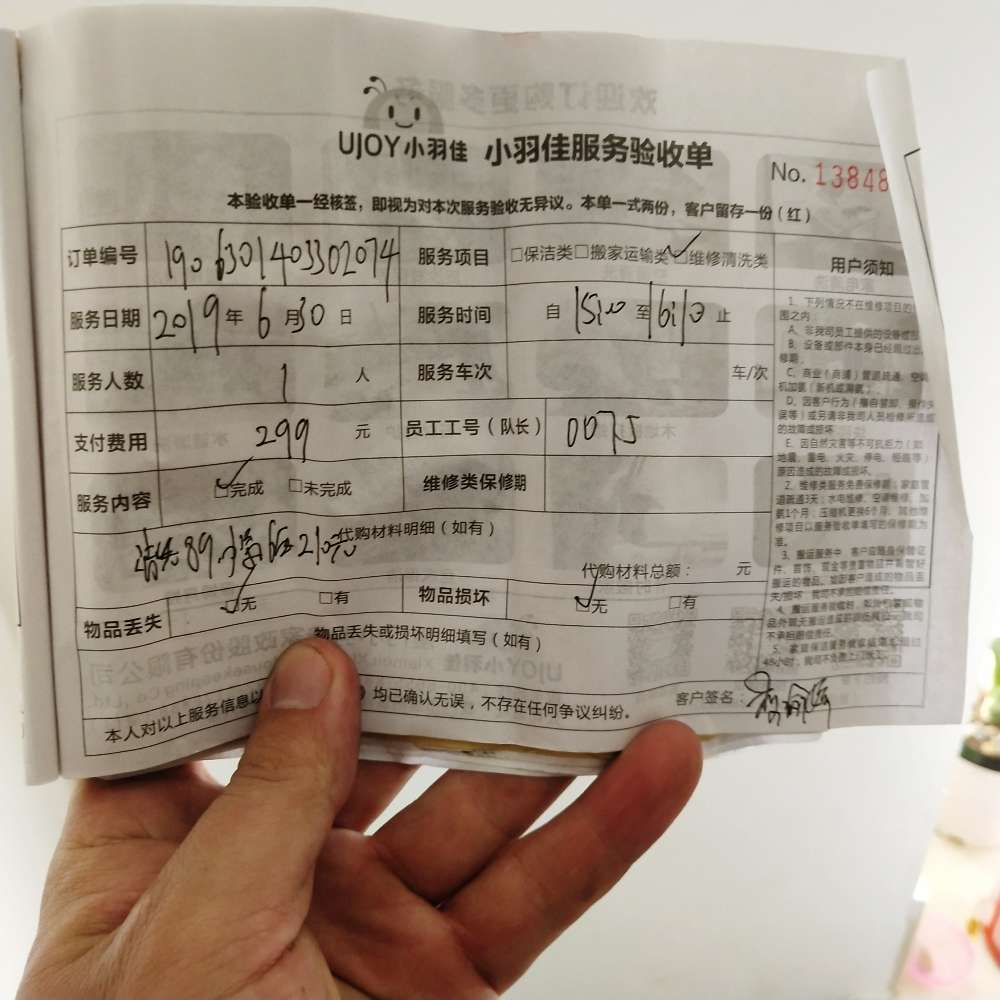 UJOY小羽佳 小羽佳服务验收单
No. 13848
本验收单一经核签，即视为对本次服务验收无异议。本单一式两份，客户留存一份（红）
订单编号 1906301403302074 服务项目 □保洁类□搬家运输类□维修清洗类
服务日期 2019年6月30日 服务时间 自15:10至16:10止
服务人数 1人 服务车次 车/次
支付费用 299元 员工工号（队长） 0075
服务内容 □完成 □未完成 维修类保修期
代购材料明细（如有）
清洗89
代购材料总额： 元
物品丢失 □无 □有 物品损坏 □无 □有
物品丢失或损坏明细填写（如有）
本人对以上服务信息以 均已确认无误，不存在任何争议纠纷。
客户签名：
用户须知
1、下列情况不在维修项目的
围之内：
A、非我司员工提供的设备或部
B、设备或部件本身已经超过出
修期；
C、商业（商铺）管道疏通、空
机加氨（新机或漏氨）；
D、因客户行为（擅自
误等）或另请非我司人员检修所造成
的故障或损坏
E、因自然灾害等不可抗拒力（如
地震、雷电、火灾、停电、短路等）
原因造成的故障或损坏。
2、维修类服务免费保修期：家庭管
道疏通3天；水电维修、空调维修、加
氨1个月；压缩机更换6个月；其他维
修项目以服务验收单填写的保修期为
准。
3、搬运服务中，客户应随身保管证
件、首饰、现金等贵重物品并看管好
搬运的物品。如因客户造成的物品丢
失/损坏，我司不承担赔偿责任。
不承担赔偿责任。